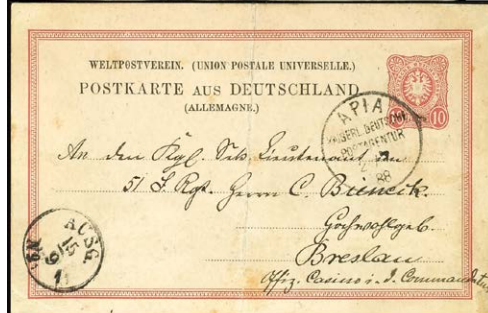 WELTPOSTVEREIN. (UNION POSTALE UNIVERSELLE.)
POSTKARTE AUS DEUTSCHLAND
(ALLEMAGNE.)
10 10
APIA
KAISERL. DEUTSCHE
POSTAGENTUR
88
An den Kgl. Sek. Lieutenant
51 J. Rgt. Herrn C.
Hochwohlgeb.
Breslau
Offiz. Casino
AUSG